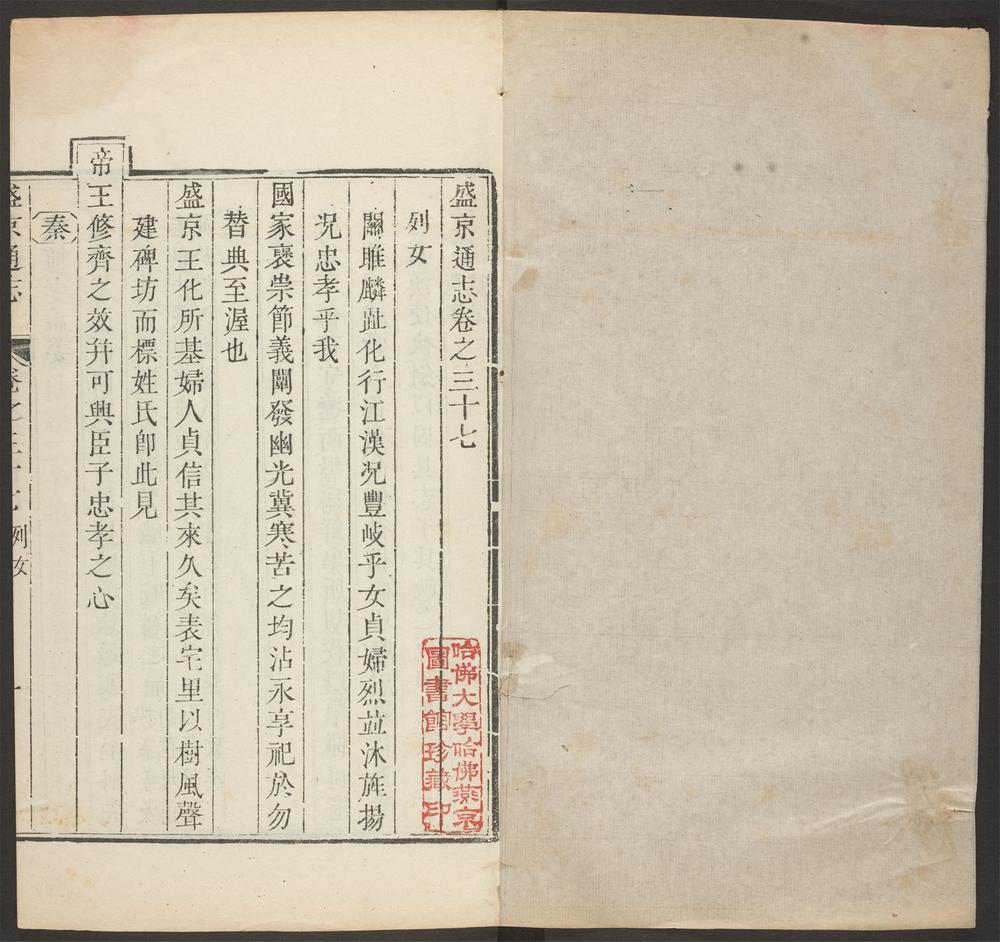 盛京通志卷之三十七
列女
關雎麟趾化行江漢况豐岐乎女貞婦烈並沐旌揚
况忠孝乎我
國家褒崇節義闡發幽光冀寒苦之均沾永享祀於勿
替典至渥也
盛京王化所基婦人貞信其來久矣表宅里以樹風聲
建碑坊而標姓氏卽此見
帝王修齊之效并可興臣子忠孝之心
秦
盛京通志 卷之三十七 列女 一
哈佛大學哈佛燕京
圖書館珍藏印